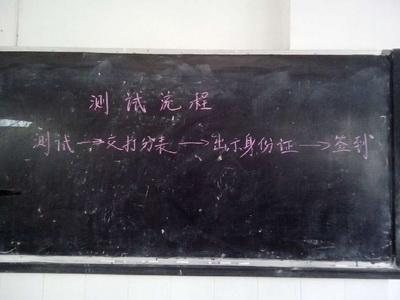 测试流程
测试→交打分表→出示身份证→签到